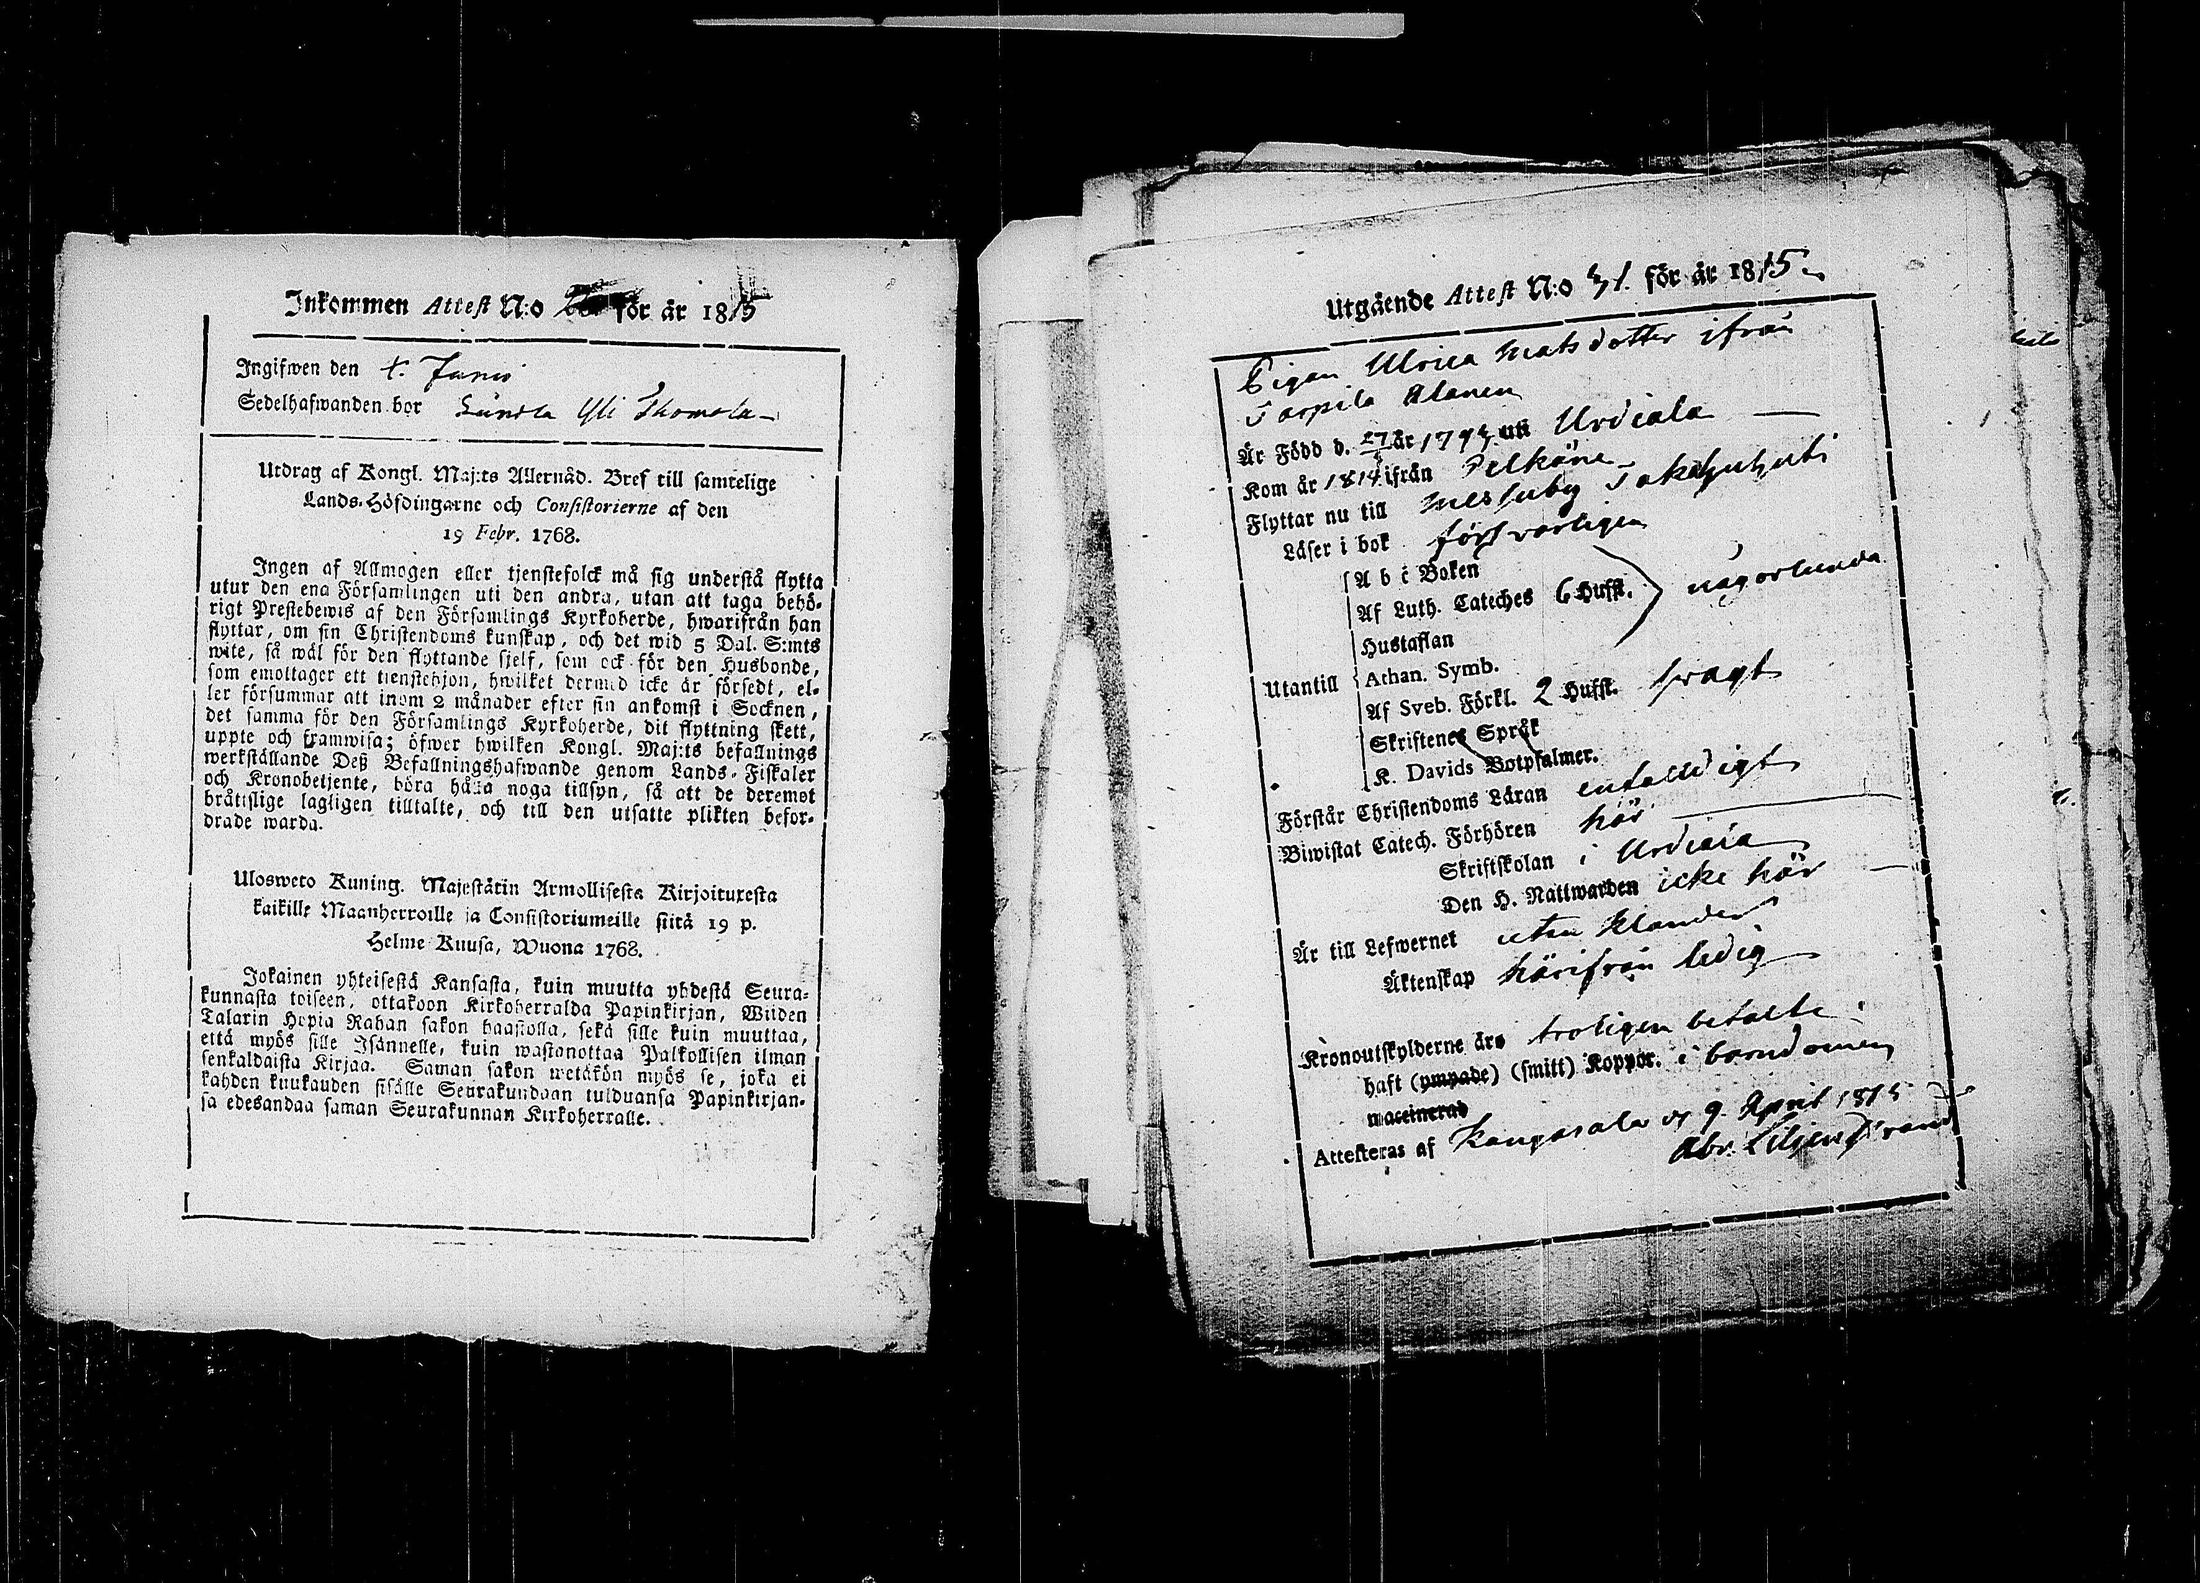 Inkommen Attest N:o för är 1815
Ingifwen den 4. Junii
Sedelhafwanden bor Yli Thomola
Utdrag af Kongl. Maj:ts Allernåd. Bref till samtelige
Lands-Höfdingarne och Consistorierne af den
19 Febr. 1768.
Ingen af Allmogen eller tjenstefolck må sig understå flytta
utur den ena Församlingen uti den andra, utan att taga behö-
rigt Prestebewis af den Församlings Kyrkoherde, hwarifrån han
flyttar, om sin Christendoms kunskap, och det wid 5 Dal. S:mts
wite, så wäl för den flyttande sjelf, som ock för den Husbonde,
som emottager ett tienstehjon, hwilket dermed icke är försedt, el-
ler försummar att inom 2 månader efter sin ankomst i Socknen,
det samma för den Församlings Kyrkoherde, dit flyttning skett,
uppte och framwisa; öfwer hwilken Kongl. Maj:ts befallnings
werkställande Deß Befallningshafwande genom Lands-Fiskaler
och Kronobetjente, böra hålla noga tillsyn, så att de deremot
bråttslige lagligen tilltalte, och till den utsatte plikten befor-
drade warda.
Ulosweto Kuning. Majestätin Armollisesta Kirjoituxesta
kaikille Maanherroille ja Consistoriumeille siitä 19 p.
Helme Kuusa, Wuona 1768.
Jokainen yhteisestä Kansasta, kuin muutta yhdestä Seura-
kunnasta toiseen, ottakoon Kirkoherralda Papinkirjan, Wiiden
Talarin Hopia Rahan sakon haastolla, sekä sille kuin muuttaa,
että myös sille Isännelle, kuin wastanottaa Palkollisen ilman
senkaldaista Kirjaa. Saman sakon wetäkön myös se, joka ei
kahden kuukauden sisälle Seurakundaan tulduansa Papinkirjan-
sa edesandaa saman Seurakunnan Kirkoherralle.
Utgående Attest N:o 31. för år 1815
Pigan Ulrica Matsdotter ifrån
Tarpila Alanen
Är Född d. 27 år 1793 uti Urdiala
Kom år 1814 ifrån Pelkäne
Flyttar nu till Messuby Takahuhti
Läser i bok försvarligen
A b c Boken
Af Luth. Cateches 6 Hufst. någorlunda
Hustaflan
Athan. Symb.
Utantill
Af Sveb. Förkl. 2 Hufst. svagt
Skriftenes Språk
K. Davids Botpsalmer.
Förstår Christendoms Läran enfaldigt
Biwistat Catech. Förhören här
Skriftskolan i Urdiala
Den H. Nattwarden icke här
Är till Lefwernet utan klander
Äktenskap härifrån ledig
Kronoutskylderne äro troligen betalte
haft (ympade) (smitt) Koppor. i barndomen
waccinerad
Attesteras af Kangasala d 9. April 1815
Abr. Liljenstrand